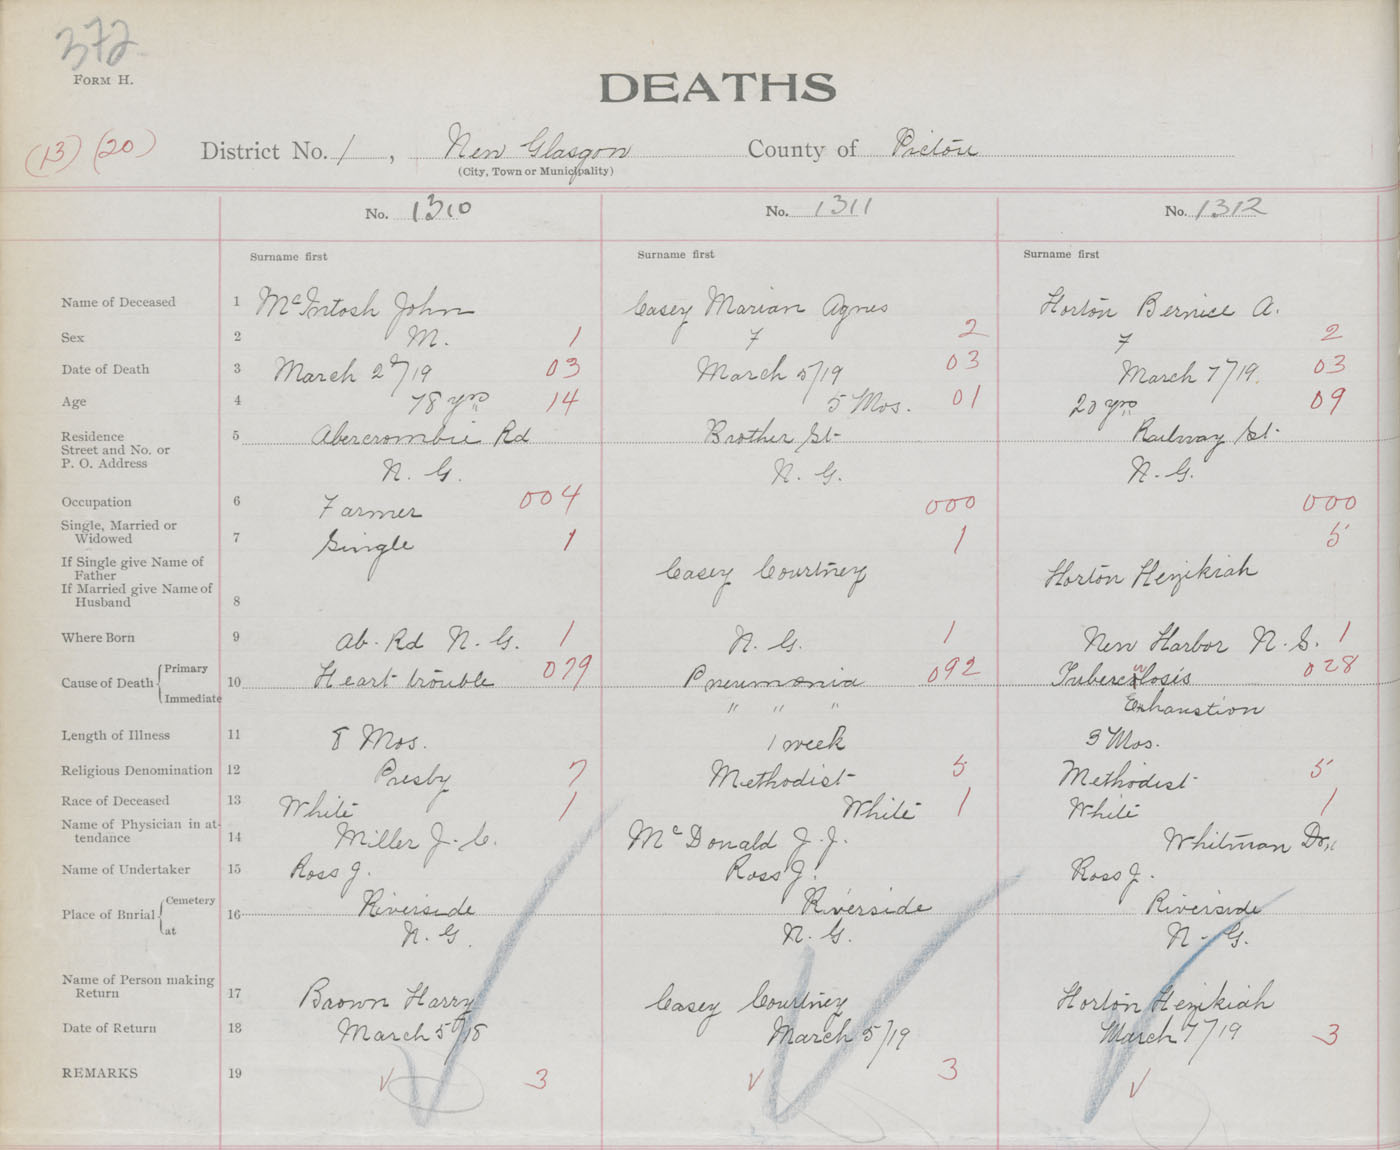 372
FORM H.
DEATHS
(13) (20)
District No. 1, New Glasgow County of Pictou
(City, Town or Municipality)
No. 1310 No. 1311 No. 1312
Surname first Surname first Surname first
Name of Deceased 1 McIntosh John Casey Marian Agnes Horton Bernice A.
Sex 2 M. 1 F 2 F 2
Date of Death 3 March 2nd/19 03 March 5/19 03 March 7/19. 03
Age 4 78 yrs 14 5 Mos. 01 20 yrs 09
Residence 5 Abercrombie Rd Brother St Railway St
Street and No. or
P. O. Address N. G. N. G. N. G.
Occupation 6 Farmer 004 000 000
Single, Married or
Widowed 7 Single 1 1 5
If Single give Name of
Father Casey Courtney Horton Hezikiah
If Married give Name of
Husband 8
Where Born 9 Ab. Rd N. G. 1 N. G. 1 New Harbor N. S. 1
Cause of Death Primary 10 Heart trouble 079 Pneumonia 092 Tuberculosis 028
Immediate " " " Exhaustion
Length of Illness 11 8 Mos. 1 week 3 Mos.
Religious Denomination 12 Presby 7 Methodist 5 Methodist 5
Race of Deceased 13 White 1 White 1 White 1
Name of Physician in at-
tendance 14 Miller J. C. McDonald J. J. Whitman Dr.
Name of Undertaker 15 Ross J. Ross J. Ross J.
Place of Burial Cemetery 16 Riverside Riverside Riverside
at N. G. N. G. N. G.
Name of Person making
Return 17 Brown Harry Casey Courtney Horton Hezikiah
Date of Return 18 March 5th/18 March 5/19 March 7/19 3
REMARKS 19 3 3